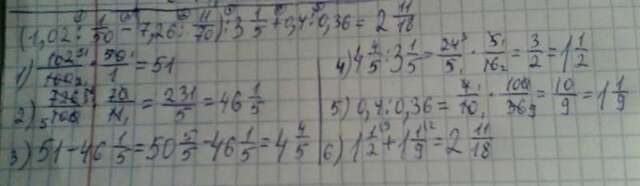 (1,02 : 1/50 − 7,26 : 11/70) : 3 1/5 + 0,4 : 0,36 = 2 11/18
1) 102/100 · 50/1 = 51
2) 726/100 · 70/11 = 231/5 = 46 1/5
3) 51 − 46 1/5 = 50 5/5 − 46 1/5 = 4 4/5
4) 4 4/5 : 3 1/5 = 24/5 · 5/16 = 3/2 = 1 1/2
5) 0,4 : 0,36 = 4/10 · 100/36 = 10/9 = 1 1/9
6) 1 1/2 + 1 1/9 = 2 11/18